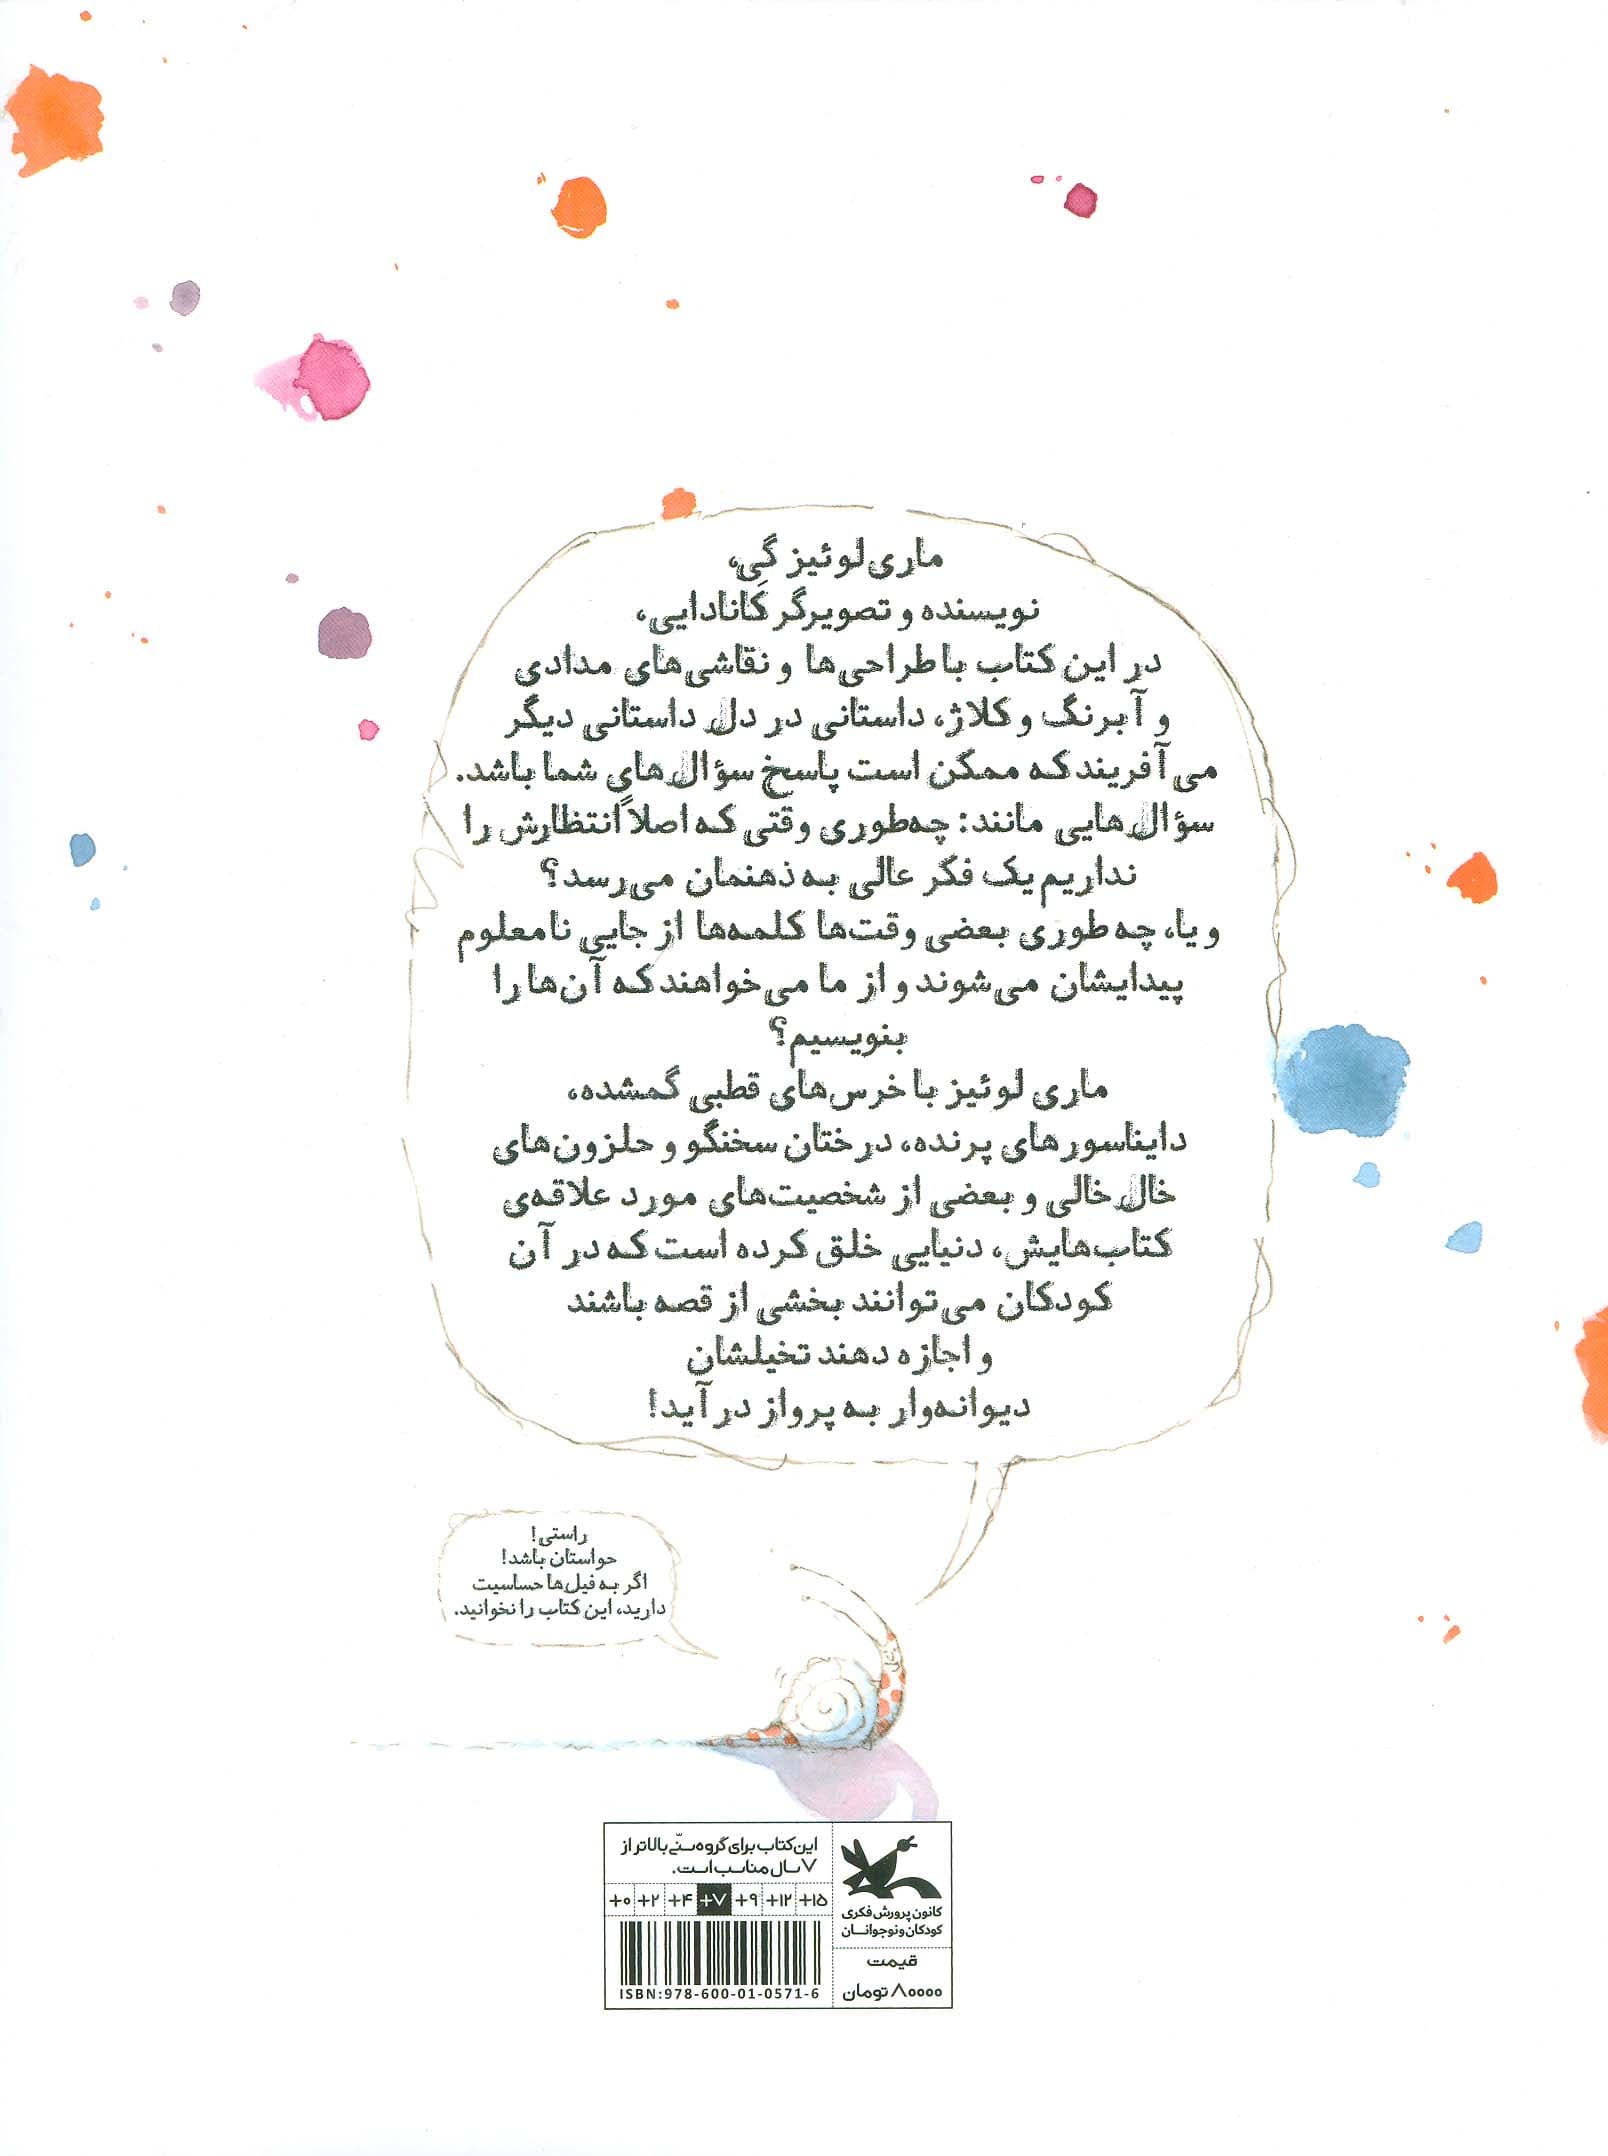 ماری‌لوئیز گَی،
نویسنده و تصویرگر کانادایی،
در این کتاب با طراحی‌ها و نقاشی‌های مدادی
و آبرنگ و کلاژ، داستانی در دل داستانی دیگر
می‌آفریند که ممکن است پاسخ سؤال‌های شما باشد.
سؤال‌هایی مانند: چه‌طوری وقتی که اصلاً انتظارش را
نداریم یک فکر عالی به ذهنمان می‌رسد؟
و یا، چه‌طوری بعضی وقت‌ها کلمه‌ها از جایی نامعلوم
پیدایشان می‌شوند و از ما می‌خواهند که آن‌ها را
بنویسیم؟
ماری لوئیز با خرس‌های قطبی گمشده،
دایناسورهای پرنده، درختان سخنگو و حلزون‌های
خال‌خالی و بعضی از شخصیت‌های مورد علاقه‌ی
کتاب‌هایش، دنیایی خلق کرده است که در آن
کودکان می‌توانند بخشی از قصه باشند
و اجازه دهند تخیلشان
دیوانه‌وار به پرواز درآید!
راستی!
حواستان باشد!
اگر به فیل‌ها حساسیت
دارید، این کتاب را نخوانید.
این کتاب برای گروه سنّی بالاتر از
۷ سال مناسب است.
+۰ +۲ +۴ +۷ +۹ +۱۲ +۱۵
ISBN:978-600-01-0571-6
کانون پرورش فکری
کودکان و نوجوانان
قیمت
۸۰۰۰۰ تومان